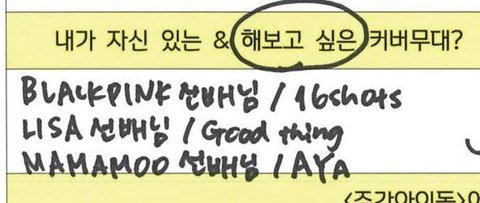 내가 자신 있는 & 해보고 싶은 커버무대?
BLACKPINK 선배님 / 16shots
LISA 선배님 / Good thing
MAMAMOO 선배님 / AYA
<주간아이돌>